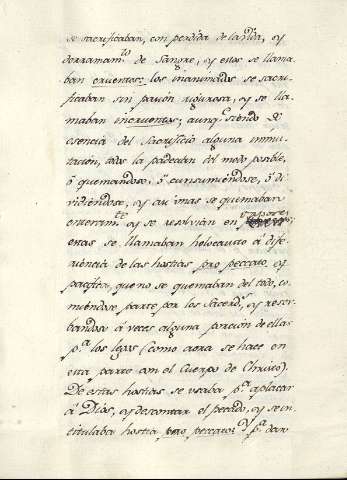 se sacrificaban, con perdida de la vida, y
derramam.to de Sangre, y estos se llama-
ban cruentos: los inanimados se sacri-
ficaban sin pasión rigurosa, y se lla-
maban incruentos; aunq.e siendo de
esencia del Sacrificio alguna inmu-
tación, todos la padecían del modo posible,
ó quemandose, ó consumiendose, ó di-
vidiendose, y aun unas se quemaban
enteram.te y se resolvian en vapores
estas se llamaban holocausto á dife-
rencia de las hostias pro peccato, y
pacifica, que no se quemaban del todo, co-
miendose parte por los Sacerd.s, y reser-
bandose á veces alguna porcion de ellas
p.a los legos (como aora se hace en
esta parte con el Cuerpo de Christo).
De estas hostias se usaba p.a aplacar
á Dios, y descontar el pecado, y se in-
titulaba hostia pro peccato: y p.a dar